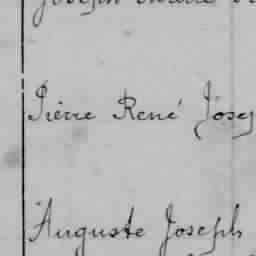 Joseph
Pierre René Josep
Auguste Joseph